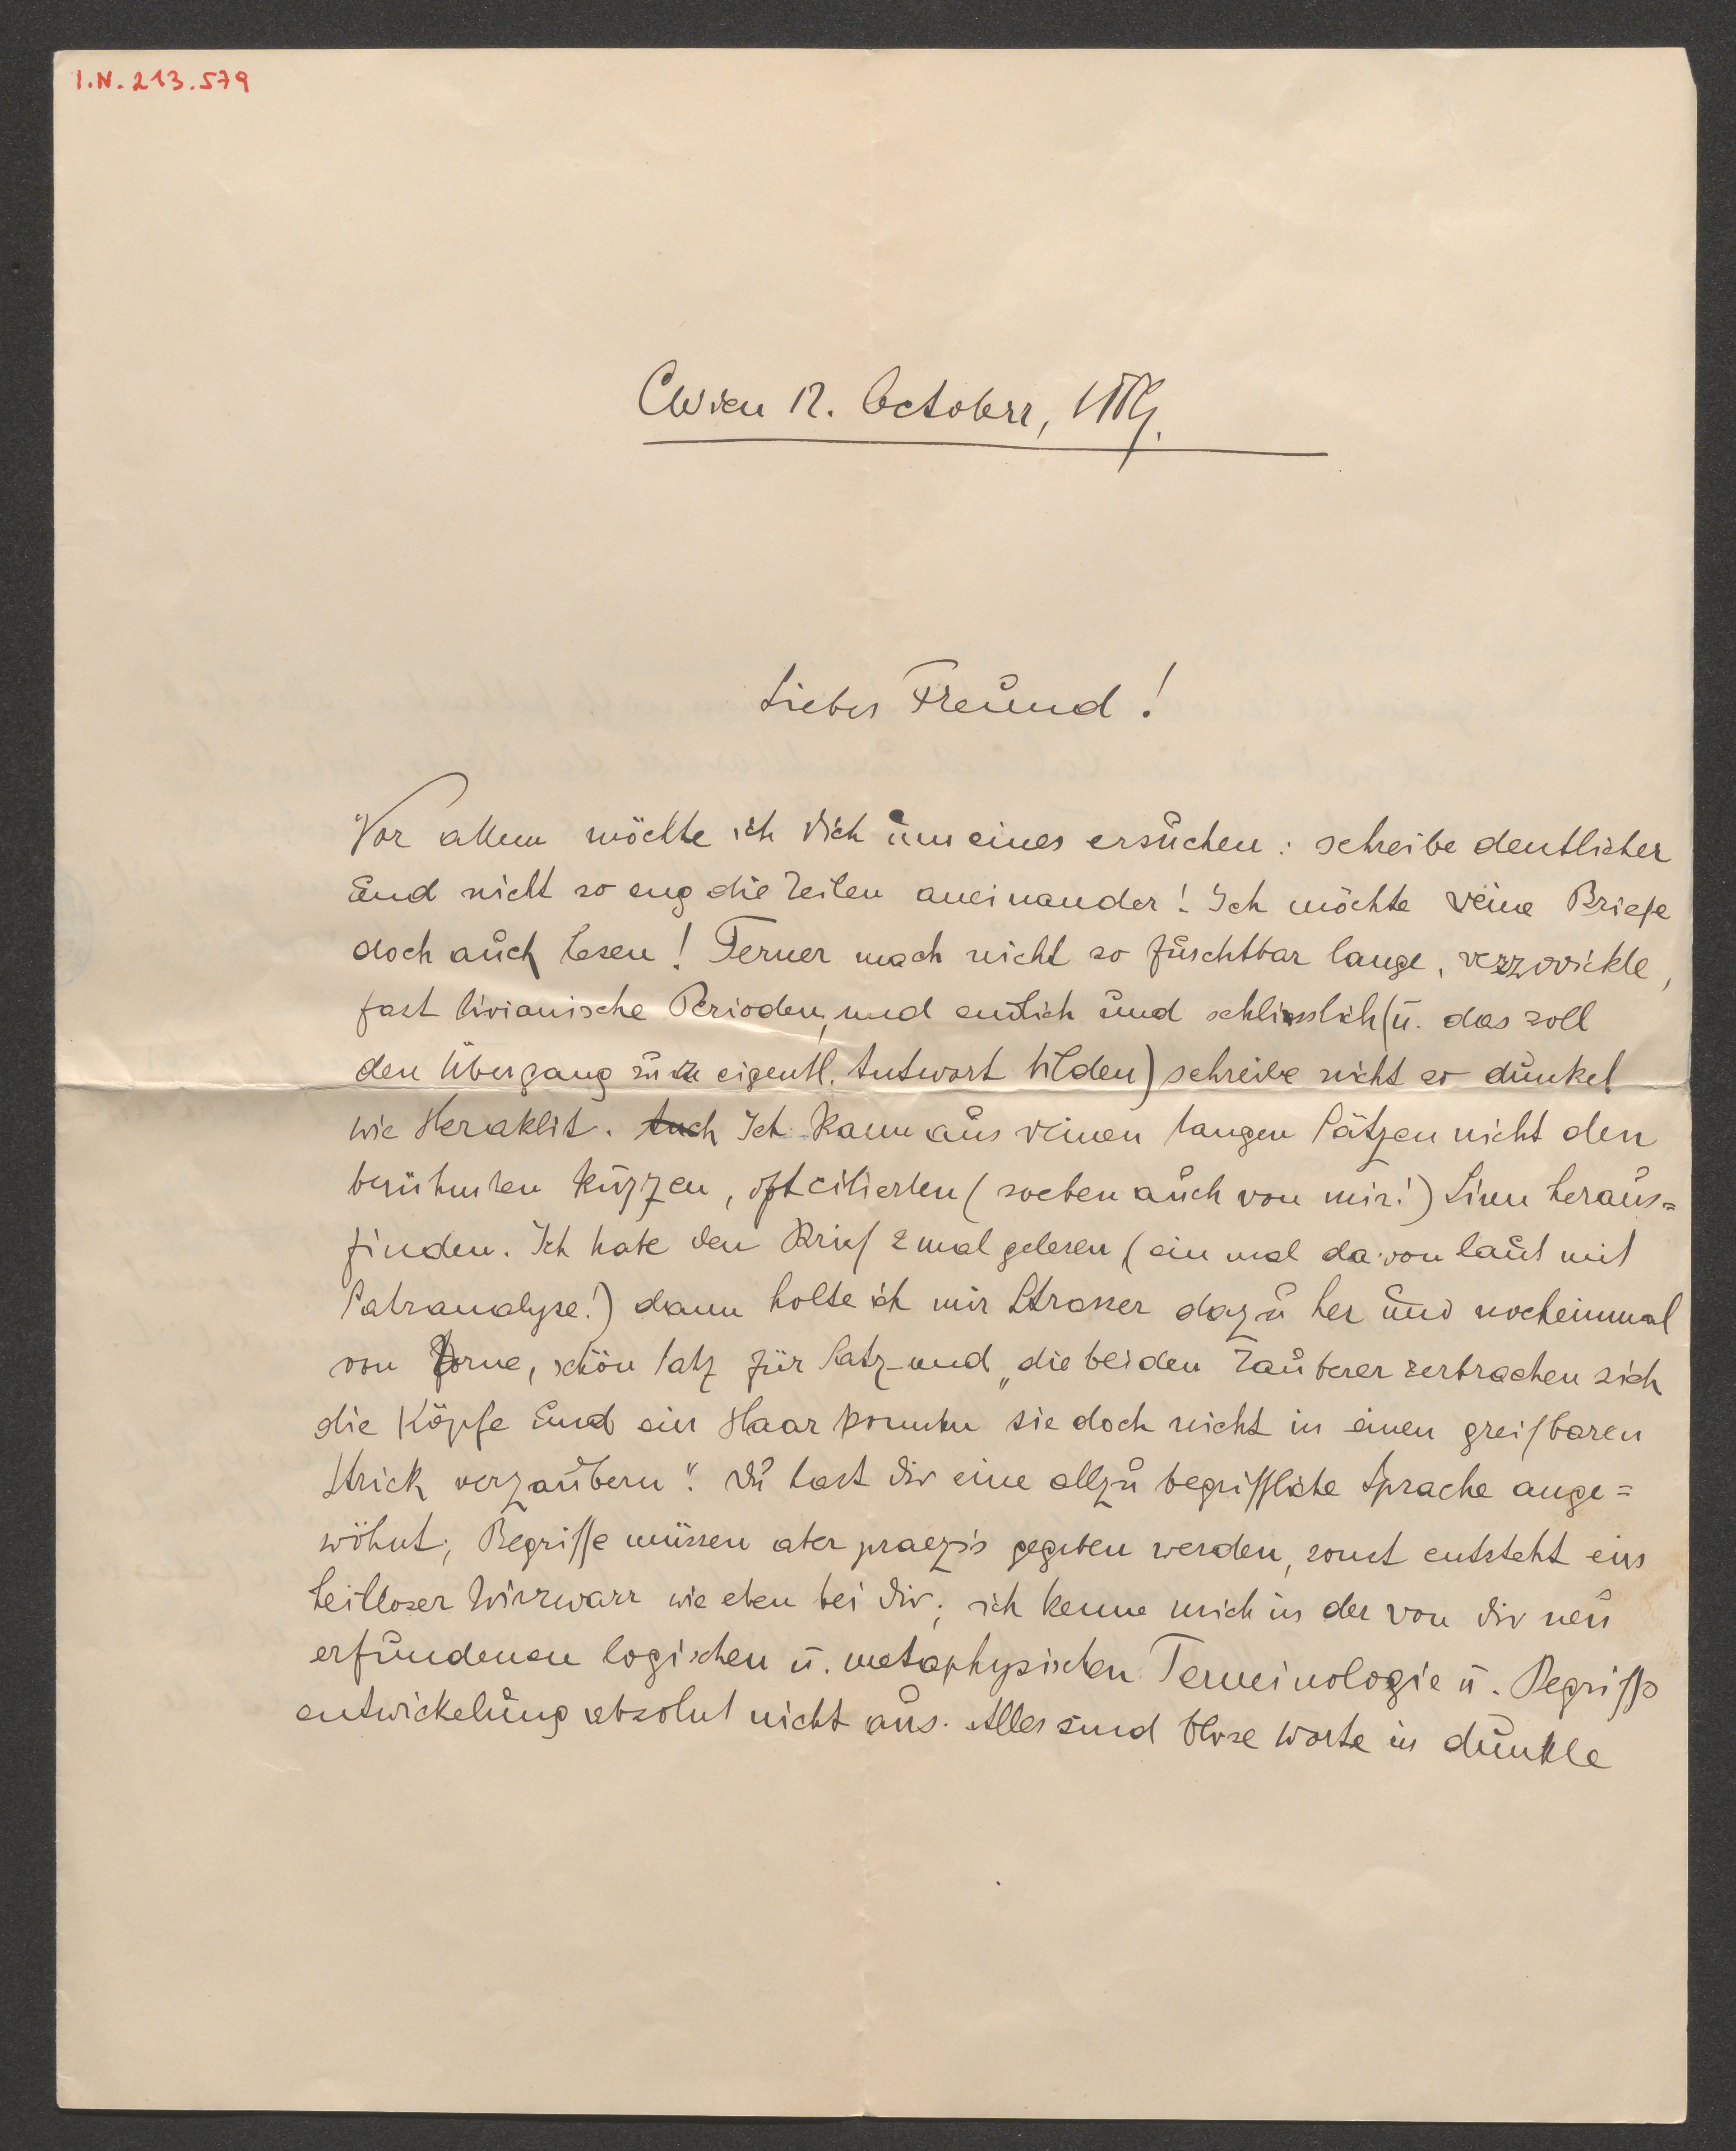 I.N. 213.579
Wien 12. October,
Lieber Freund!
Vor allem möchte ich Dich um eines ersuchen: schreibe deutlicher
und nicht so eng die Zeilen aneinander! Ich möchte Deine Briefe
doch auch lesen! Ferner mach nicht so furchtbar lange, verzwickte,
fast livianische Perioden, und endlich und schliesslich (u. das soll
den Übergang zur eigentl. Antwort bilden) schreibe nicht so dunkel
wie Heraklit. Auch Ich kann aus Deinen langen Sätzen nicht den
berühmten kurzen, oft citierten (soeben auch von mir!) Sinn heraus=
finden. Ich habe den Brief 2 mal gelesen (ein mal davon laut mit
Satzanalyse!) dann holte ich mir Strasser dazu her und nocheinmal
von Vorne, schön Satz für Satz – und „die beiden Zauberer zerbrachen sich
die Köpfe und ein Haar konnten sie doch nicht in einen greifbaren
Strick verzaubern". Du hast Dir eine allzu begriffliche Sprache ange=
wöhnt; Begriffe müssen aber praezis gegeben werden, sonst entsteht ein
heilloser Wirrwarr wie eben bei Dir; ich kenne mich in der von Dir neu
erfundenen logischen u. metaphysischen Terminologie u. Begriffs
entwickelung absolut nicht aus. Alles sind blose Worte in dunkle